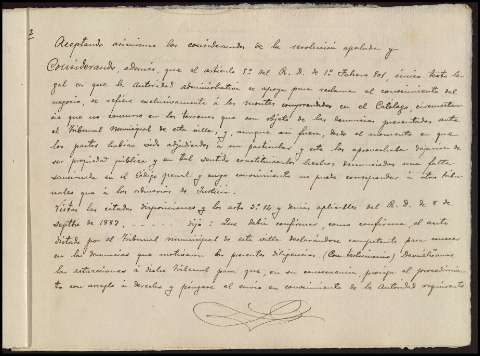 Aceptando asimismo los considerandos de la resolución apelada y
Considerando, además, que el artículo 5º del R. D. de 1º Febrero 901, único texto le-
gal en que la Autoridad administrativa se apoya para reclamar el conocimiento del
negocio, se refiere exclusivamente á los montes comprendidos en el Catálogo, circunstan-
cia que no concurre en los terrenos que son objeto de las denuncias presentadas ante
el Tribunal Municipal de esta villa, y, aunque así fuera, desde el momento en que
los pastos habían sido adjudicados á un particular, y este los aprovechaba dejaron de
ser propiedad pública y en tal sentido constituirían los hechos denunciados una falta
sancionada en el Código penal y cuyo conocimiento no puede corresponder á otros tribu-
nales que á los ordinarios de Justicia.
Vistas las citadas disposiciones y los arts 3º 12 y demás aplicables del R. D. de 8 de
Septbre de 1887, . . . . . dijo: Que debía confirmar, como confirma el auto
dictado por el Tribunal municipal de esta villa declarándose competente para conocer
en las denuncias que motivaron las presentes diligencias. (Con testimonio) Devuélvanse
las actuaciones á dicho Tribunal para que, en su consecuencia, prosiga el procedimien-
to con arreglo á derecho y póngase el envío en conocimiento de la Autoridad requirente.